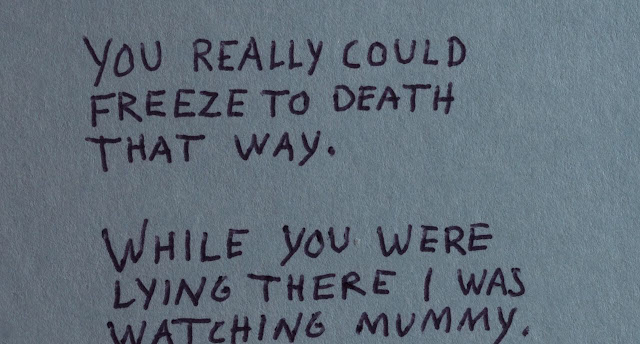 YOU REALLY COULD
FREEZE TO DEATH
THAT WAY.
WHILE YOU WERE
LYING THERE I WAS
WATCHING MUMMY.